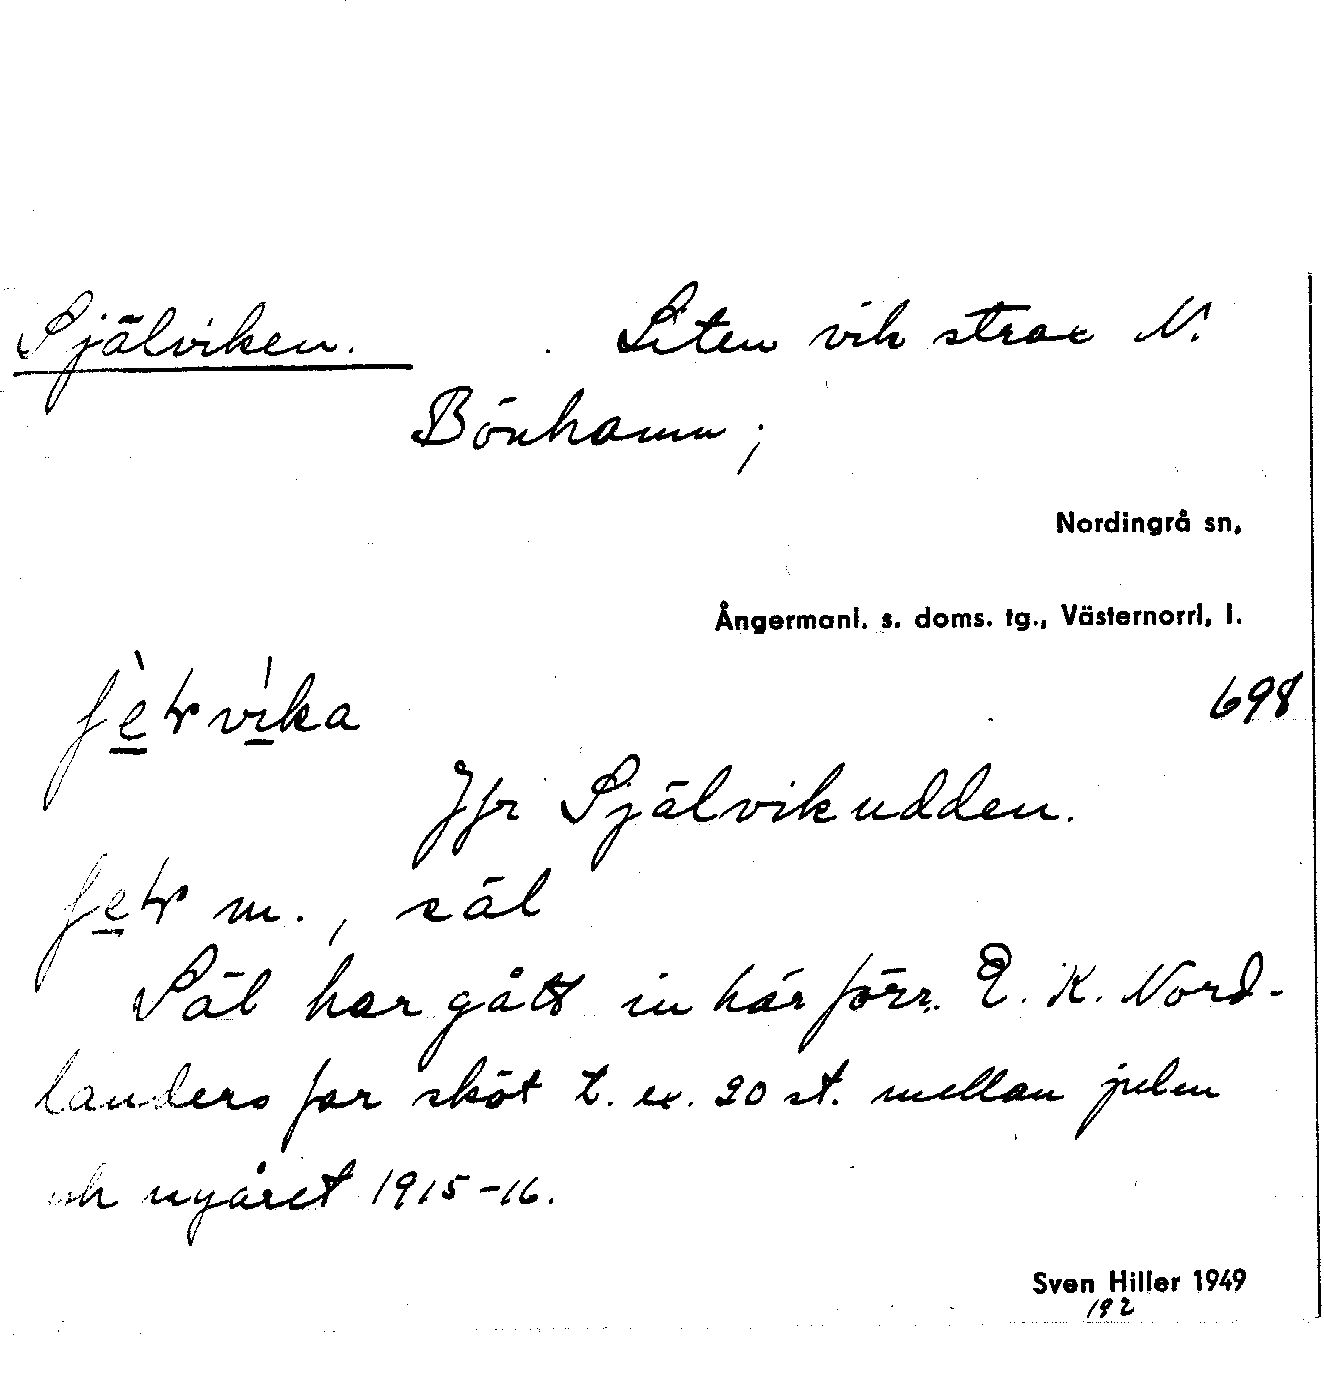 Själviken. Liten vik strax N.
Bönhamn;
Nordingrå sn,
Ångermanl. s. doms. tg., Västernorrl. l.
698
Jfr Självikudden.
m., säl
Säl har gått in här förr. E. K. Nord-
landers far sköt t. ex. 20 st. mellan julen
och nyåret 1915-16.
Sven Hiller 1949
192